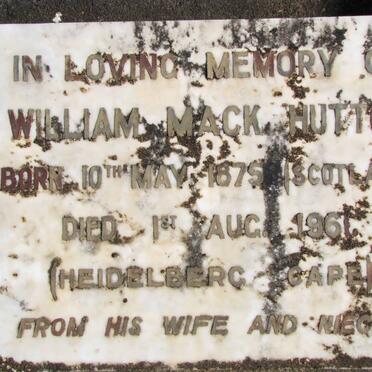 IN LOVING MEMORY O
WILLIAM MACK HUTT
BORN 10TH MAY 1875 (SCOTLA
DIED 1ST AUG. 1961
(HEIDELBERG CAPE)
FROM HIS WIFE AND NIEC